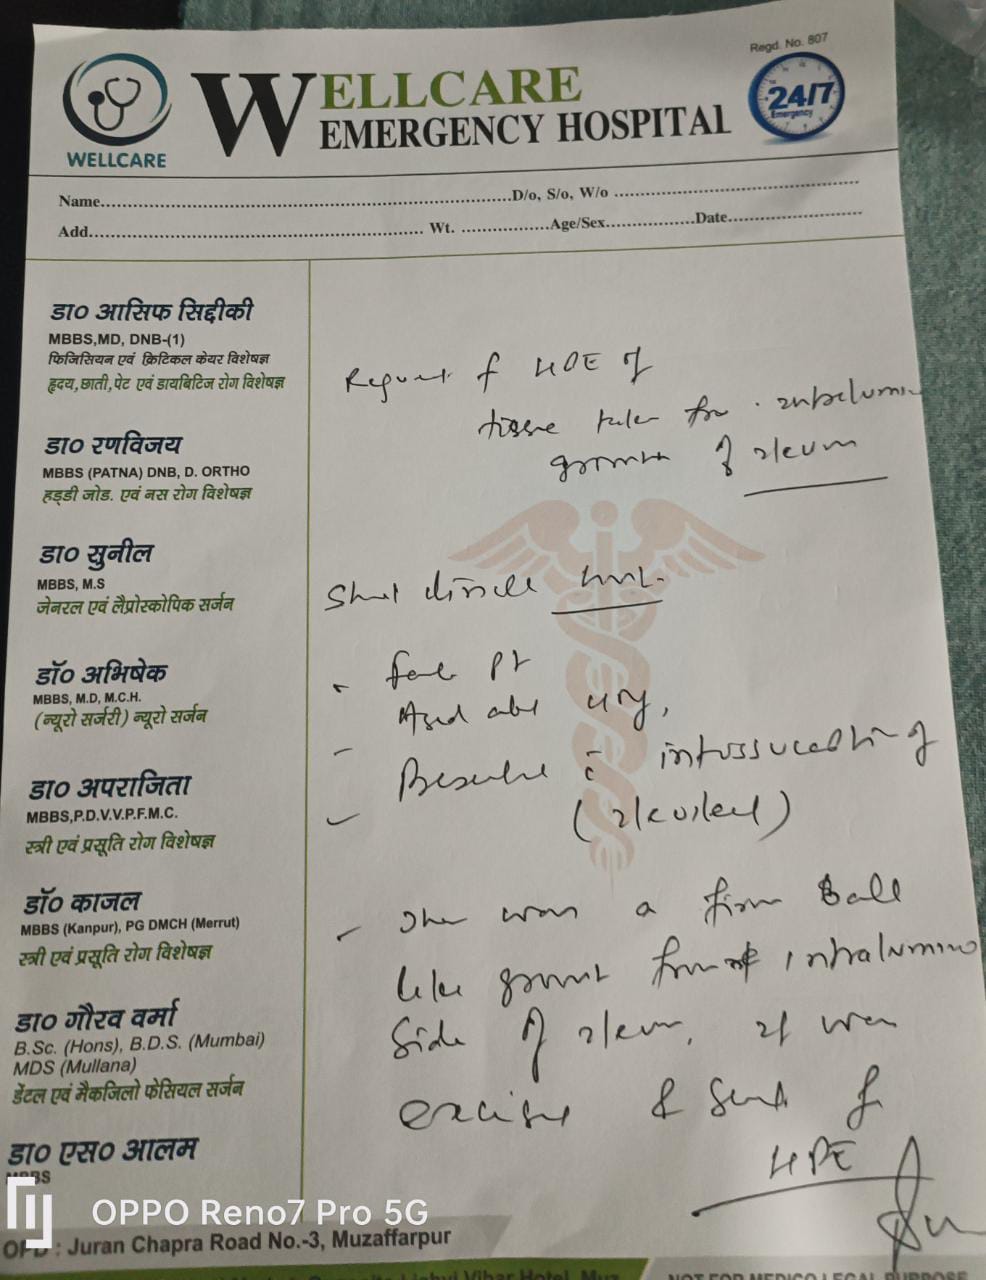 Regd. No. 807
WELLCARE
EMERGENCY HOSPITAL
24/7
Emergency
WELLCARE
Name..........D/o, S/o, W/o ..........
Add.......... Wt. ..........Age/Sex..........Date..........
डा० आसिफ सिद्दीकी
MBBS,MD, DNB-(1)
फिजिसियन एवं क्रिटिकल केयर विशेषज्ञ
हृदय,छाती,पेट एवं डायबिटिज रोग विशेषज्ञ
डा० रणविजय
MBBS (PATNA) DNB, D. ORTHO
हड्डी जोड. एवं नस रोग विशेषज्ञ
डा० सुनील
MBBS, M.S
जेनरल एवं लैप्रोस्कोपिक सर्जन
डॉ० अभिषेक
MBBS, M.D, M.C.H.
(न्यूरो सर्जरी) न्यूरो सर्जन
डा० अपराजिता
MBBS,P.D.V.V.P.F.M.C.
स्त्री एवं प्रसूति रोग विशेषज्ञ
डॉ० काजल
MBBS (Kanpur), PG DMCH (Merrut)
स्त्री एवं प्रसूति रोग विशेषज्ञ
डा० गौरव वर्मा
B.Sc. (Hons), B.D.S. (Mumbai)
MDS (Mullana)
डेंटल एवं मैकजिलो फेसियल सर्जन
डा० एस० आलम
MBBS
Request f HPE of
tissue taken from intraluminal
growth of ileum
Short clinical
Pt
Aged abt
Presented c̄ intussusception of
(ileoileal)
There was a firm Ball
like growth from intraluminal
side of ileum. It was
excised & send f
HPE
OPPO Reno7 Pro 5G
OPD : Juran Chapra Road No.-3, Muzaffarpur
NOT FOR MEDICO LEGAL PURPOSE